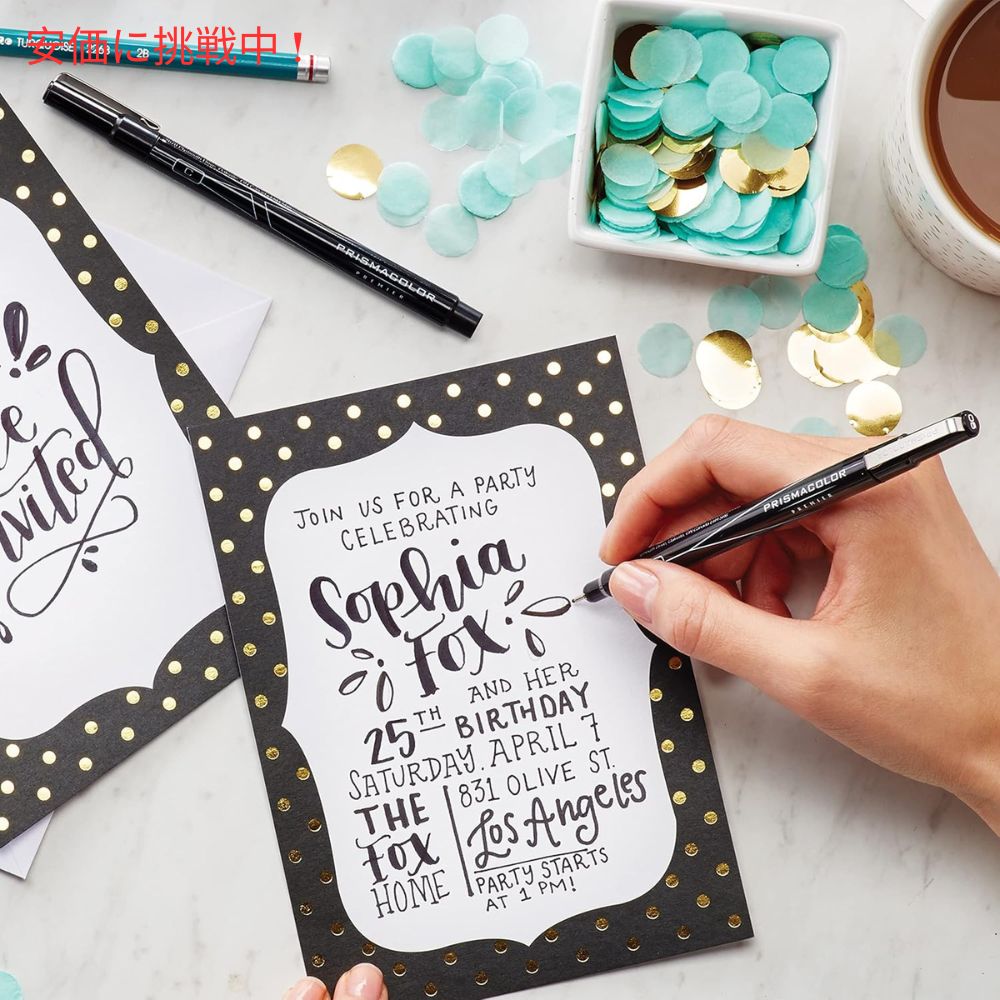 安価に挑戦中！
TURQUOISE 2B
PRISMACOLOR
PREMIER
vited
JOIN US FOR A PARTY
CELEBRATING
Sophia
Fox
AND HER
25TH BIRTHDAY
SATURDAY, APRIL 7
THE
Fox
HOME
831 OLIVE ST.
Los Angeles
PARTY STARTS
AT 1 PM!
PRISMACOLOR
PREMIER
08